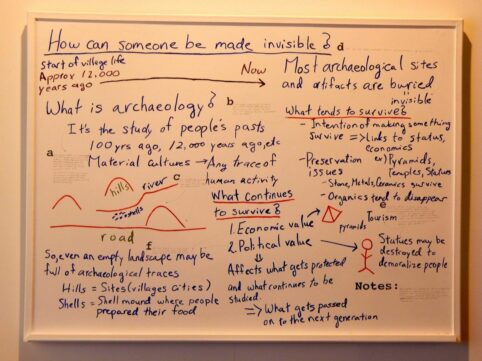 How can someone be made invisible?
d
Start of village life
Approx 12,000
years ago
Now
Most archaeological sites
and artifacts are buried
invisible
What is archaeology?
b
It's the study of people's pasts
100yrs ago, 12,000 years ago, etc
Material cultures → Any trace of
human activity
a
c
hills
river
shells
road
f
So, even an empty landscape may be
full of archaeological traces
Hills = Sites (villages cities)
Shells = Shell mound where people
prepared their food
What tends to survive?
- Intention of making something
survive => links to status,
economics
- Preservation
issues
ex) Pyramids,
Temples, Statues
- Stone, Metals, Ceramics survive
- Organics tend to disappear
What continues
to survive?
e
1. Economic value
2. Political value
pyramids
Tourism
Statues may be
destroyed to
demoralize people
Affects what gets protected
and what continues to be
studied.
=> What gets passed
on to the next generation
Notes: